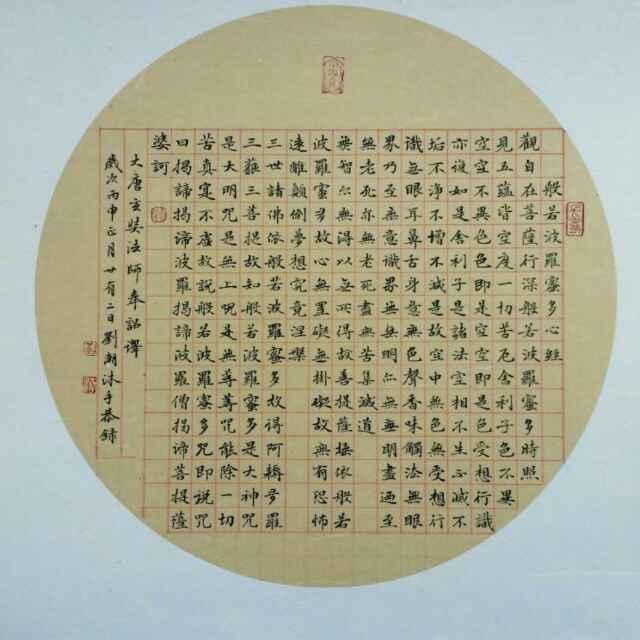 般若波羅蜜多心經
觀自在菩薩行深般若波羅蜜多時照
見五蘊皆空度一切苦厄舍利子色不異
空空不異色色即是空空即是色受想行識
亦復如是舍利子是諸法空相不生不滅不
垢不淨不增不減是故空中無色無受想行
識無眼耳鼻舌身意無色聲香味觸法無眼
界乃至無意識界無無明亦無無明盡乃至
無老死亦無老死盡無苦集滅道
無智亦無得以無所得故菩提薩埵依般若
波羅蜜多故心無罣礙無掛礙故無有恐怖
遠離顛倒夢想究竟涅槃
三世諸佛依般若波羅蜜多故得阿耨多羅
三藐三菩提故知般若波羅蜜多是大神咒
是大明咒是無上咒是無等等咒能除一切
苦真實不虛故說般若波羅蜜多咒即說咒
曰揭諦揭諦波羅揭諦波羅僧揭諦菩提薩
婆訶
大唐玄奘法師奉詔譯
歲次丙申正月廿有二日劉湖沐手恭錄